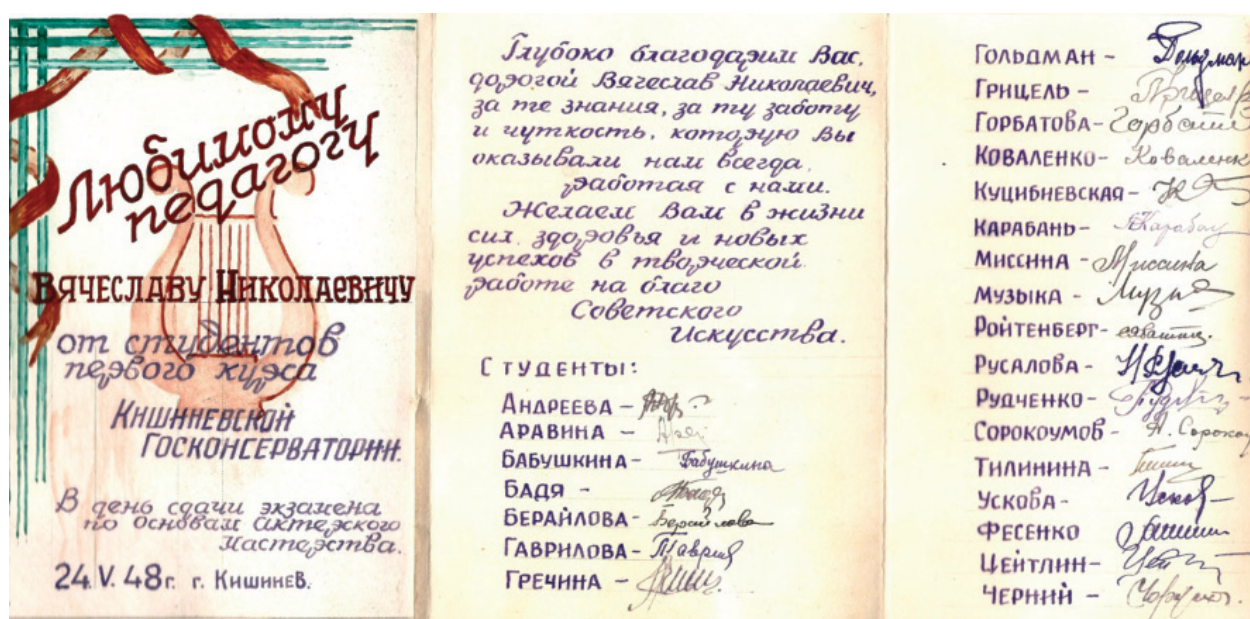 Любимому
педагогу
Вячеславу Николаевичу
от студентов
первого курса
Кишиневской
Госконсерватории.
В день сдачи экзамена
по основам актерского
мастерства.
24.V.48г. г. Кишинев.
Глубоко благодарим Вас,
дорогой Вячеслав Николаевич,
за те знания, за ту заботу
и чуткость, которую Вы
оказывали нам всегда,
работая с нами.
Желаем Вам в жизни
сил, здоровья и новых
успехов в творческой
работе на благо
Советского
Искусства.
Студенты:
Андреева -
Аравина -
Бабушкина - Бабушкина
Бадя -
Берайлова - Берайлова
Гаврилова -
Гречина -
Гольдман - Гольдман
Грицель -
Горбатова -
Коваленко - Коваленк
Куцибневская -
Карабань - Карабан
Миссина - Миссина
Музыка -
Ройтенберг -
Русалова -
Рудченко -
Сорокоумов -
Тилинина -
Ускова -
Фесенко
Цейтлин -
Черний -